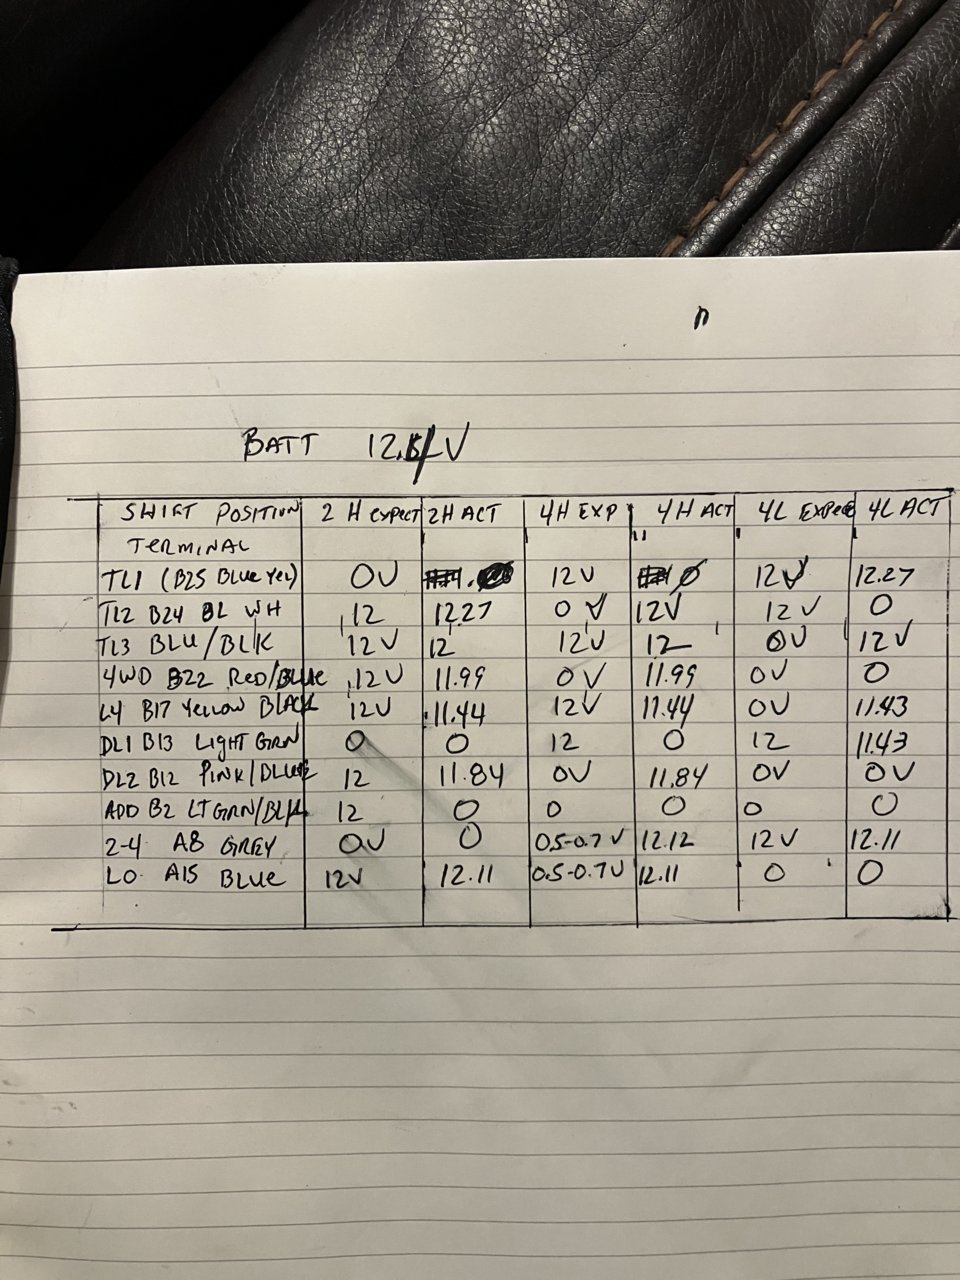 BATT 12. V
SHIFT POSITION 2 H EXPECT 2H ACT 4H EXP 4H ACT 4L EXPECT 4L ACT
TERMINAL
TL1 (B25 BLUE YEL) 0V 12V 0 12V 12.27
TL2 B24 BL WH 12 12.27 0 V 12V 12 V 0
TL3 BLU/BLK 12V 12 12V 12 0V 12V
4WD B22 RED/BLUE 12V 11.99 0V 11.99 0V 0
L4 B17 YELLOW BLACK 12V 11.44 12V 11.44 0V 11.43
DL1 B13 LIGHT GRN 0 0 12 0 12 11.43
DL2 B12 PINK/BLUE 12 11.84 0V 11.84 0V 0V
ADD B2 LTGRN/BLK 12 0 0 0 0 0
2-4 A8 GREY 0V 0 0.5-0.7 V 12.12 12V 12.11
LO A15 BLUE 12V 12.11 0.5-0.7V 12.11 0 0